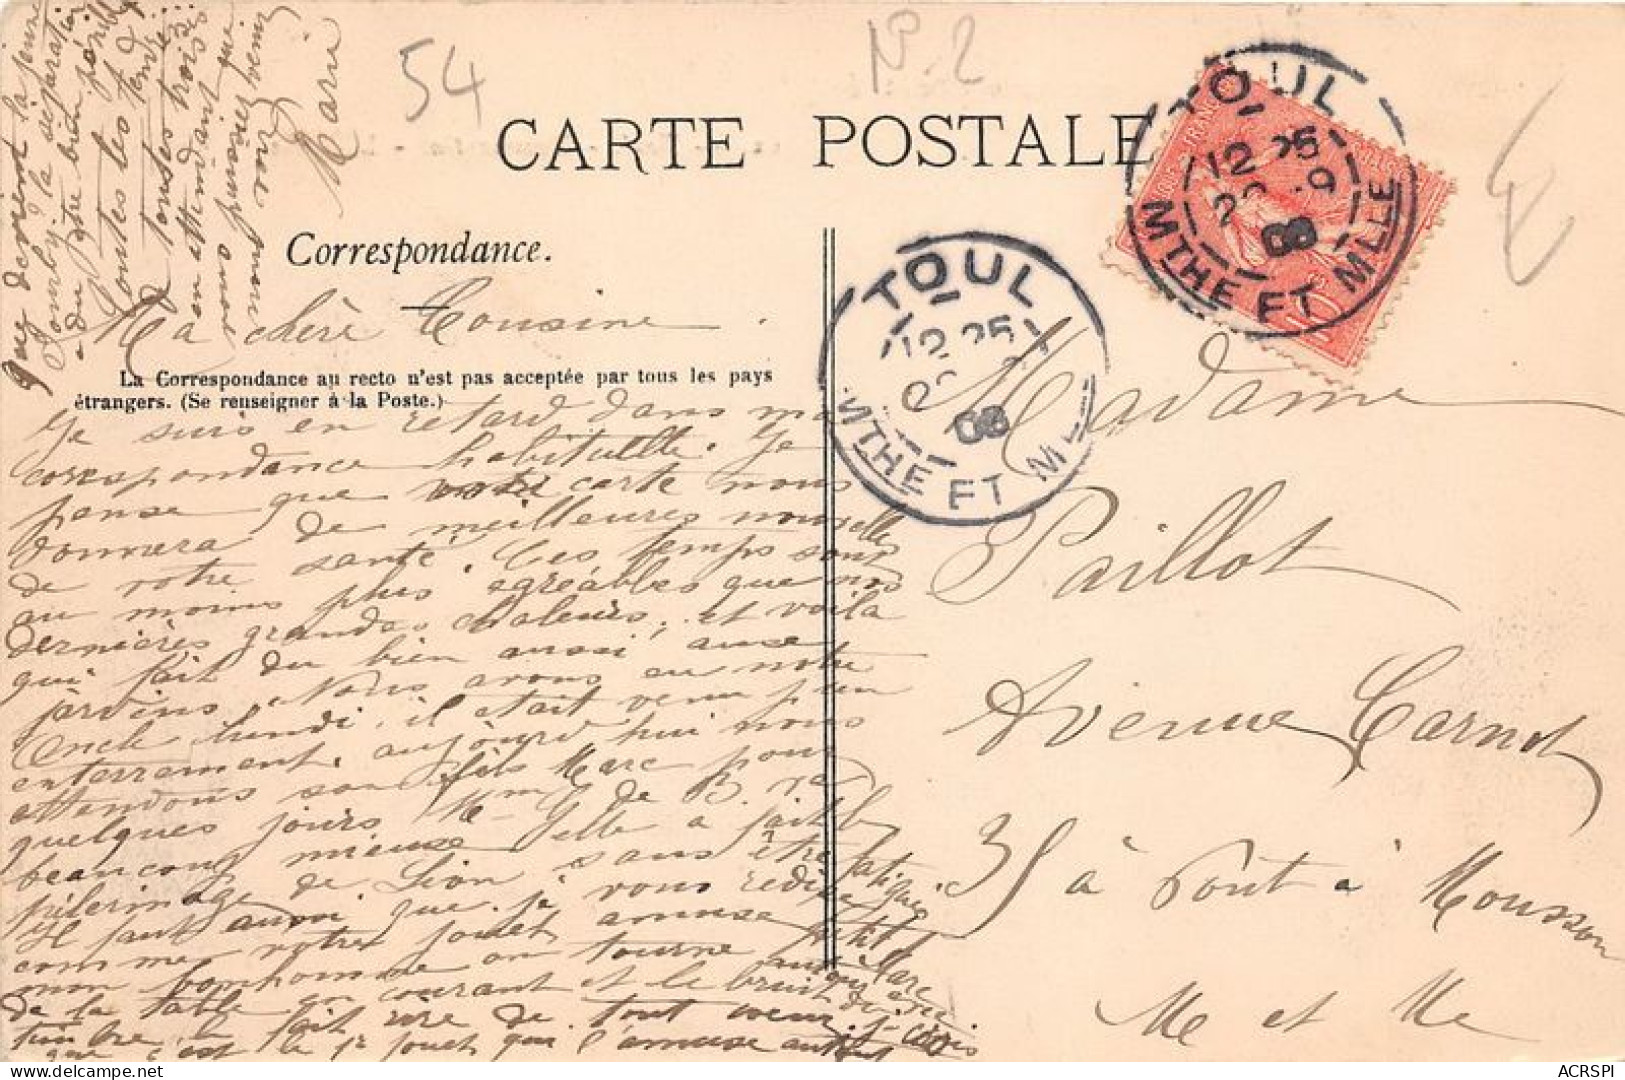 54
No 2
CARTE POSTALE
TOUL
12 25
08
MTHE ET MLLE
TOUL
12 25
08
MTHE ET M
Correspondance.
Ma chère Cousine
La Correspondance au recto n'est pas acceptée par tous les pays
étrangers. (Se renseigner à la Poste.)
Je suis en retard dans ma
correspondance habituelle. Je
pense que votre carte nous
donnera de meilleures nouvelles
de votre santé. Ces temps sont
au moins plus agréables que nos
dernières grandes chaleurs, et voila
qui fait du bien aussi aux
jardins. Nous avons eu notre
Oncle lundi, il était venu pr un
enterrement. aujourd'hui nous
attendons son fils Marc pour
quelques jours Mme G de B. va
beaucoup mieux elle a fait le
pélerinage de Sion sans être fatiguée
Il faut aussi que je vous redise
comme votre jouet amuse petit Marc
mon bonhomme on tourne
de la table en courant et le bruit du
timbre le fait rire de tout coeur. je crois
que c'est le 1r jouet qui l'amuse autant
Que devient la jeune
la séparation
a du être bien pénible
Toutes les tend
à toutes trois
en attendant que
vous puissiez venir
nous
Marie
Madame
Paillot
Avenue Carnot
35 à Pont à Mousson
M et Me
ACRSPI